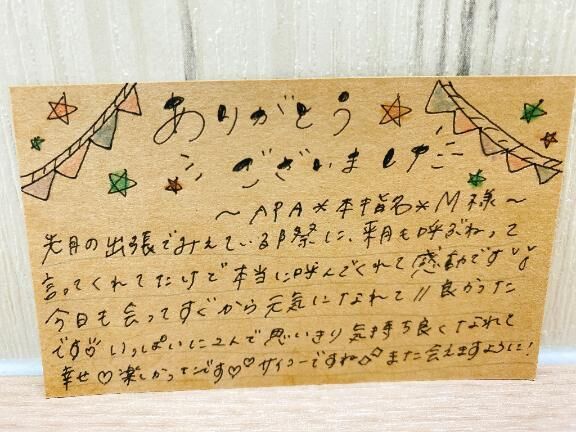 ありがとう
ございました
〜APA*本指名*M様〜
先月の出張でみえている時祭に、来月も呼ぶねって
言ってくれてたけど本当に呼んでくれて感動です
今日も会ってすぐから元気になれて!! 良かった
です♡いっぱいに2人で思いきり気持ち良くなれて
幸せ♡楽しかったです♡♡サイコーですね また会えますように!